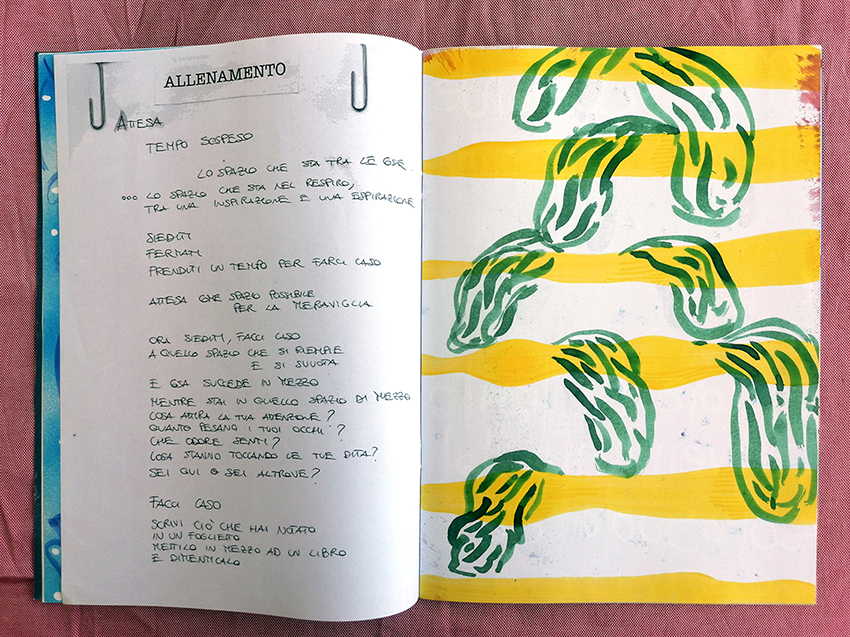 ALLENAMENTO
ATTESA
TEMPO SOSPESO
LO SPAZIO CHE STA TRA LE COSE
... LO SPAZIO CHE STA NEL RESPIRO,
TRA UNA INSPIRAZIONE E UNA ESPIRAZIONE
SIEDITI
FERMATI
PRENDITI UN TEMPO PER FARCI CASO
ATTESA COME SPAZIO POSSIBILE
PER LA MERAVIGLIA
ORA SIEDITI, FACCI CASO
A QUELLO SPAZIO CHE SI RIEMPIE
E SI SVUOTA
E COSA SUCCEDE IN MEZZO
MENTRE STAI IN QUELLO SPAZIO DI MEZZO
COSA ATTIRA LA TUA ATTENZIONE?
QUANTO PESANO I TUOI OCCHI?
CHE ODORE SENTI?
COSA STANNO TOCCANDO LE TUE DITA?
SEI QUI O SEI ALTROVE?
FACCI CASO
SCRIVI CIÒ CHE HAI NOTATO
IN UN FOGLIETTO
METTILO IN MEZZO AD UN LIBRO
E DIMENTICALO